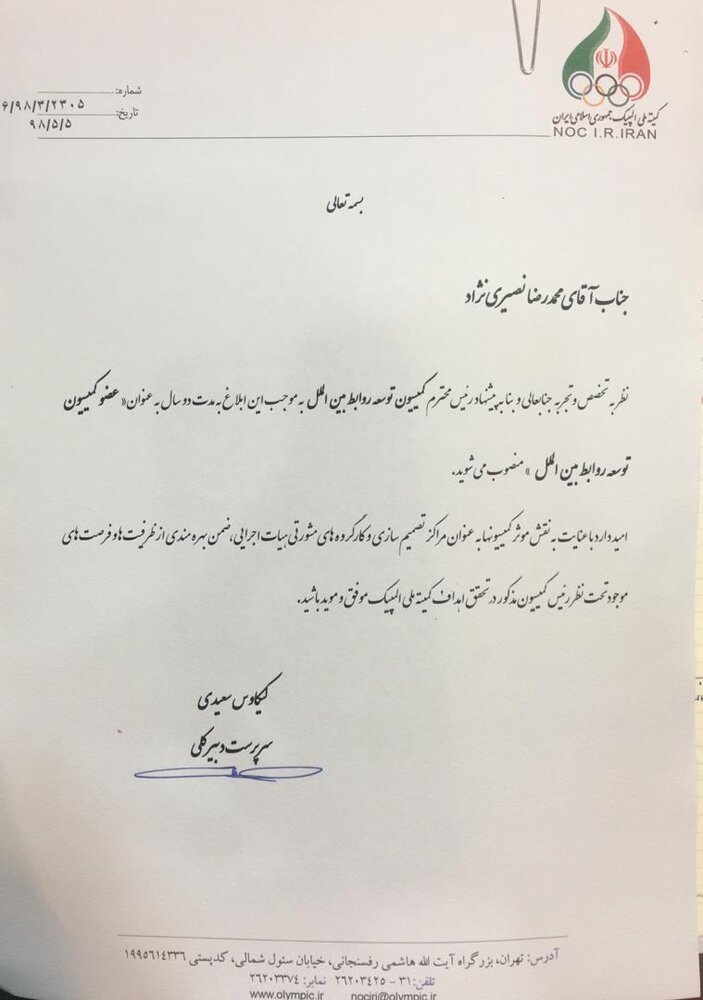 کمیته ملی المپیک جمهوری اسلامی ایران
NOC I.R.IRAN
شماره:
۶/۹۸/۳/۲۳۰۵
تاریخ:
۹۸/۵/۵
بسمه تعالی
جناب آقای محمدرضا نصیری نژاد
نظر به تخصص و تجربه جنابعالی و بنا به پیشنهاد رئیس محترم کمیسیون توسعه روابط بین الملل به موجب این ابلاغ به مدت دو سال به عنوان « عضو کمیسیون
توسعه روابط بین الملل » منصوب می شوید.
امید دارد با عنایت به نقش موثر کمیسیونها به عنوان مراکز تصمیم سازی و کارگروه های مشورتی هیات اجرایی، ضمن بهره مندی از ظرفیت ها و فرصت های
موجود تحت نظر رئیس کمیسیون مذکور در تحقق اهداف کمیته ملی المپیک موفق و موید باشید.
کیکاوس سعیدی
سرپرست دبیرکلی
آدرس: تهران، بزرگراه آیت الله هاشمی رفسنجانی، خیابان سئول شمالی، کدپستی ۱۹۹۵۶۱۴۳۳۶
تلفن: ۳۱ - ۲۶۲۰۳۴۲۵ نمابر: ۲۶۲۰۳۳۷۴
www.olympic.ir nociri@olympic.ir